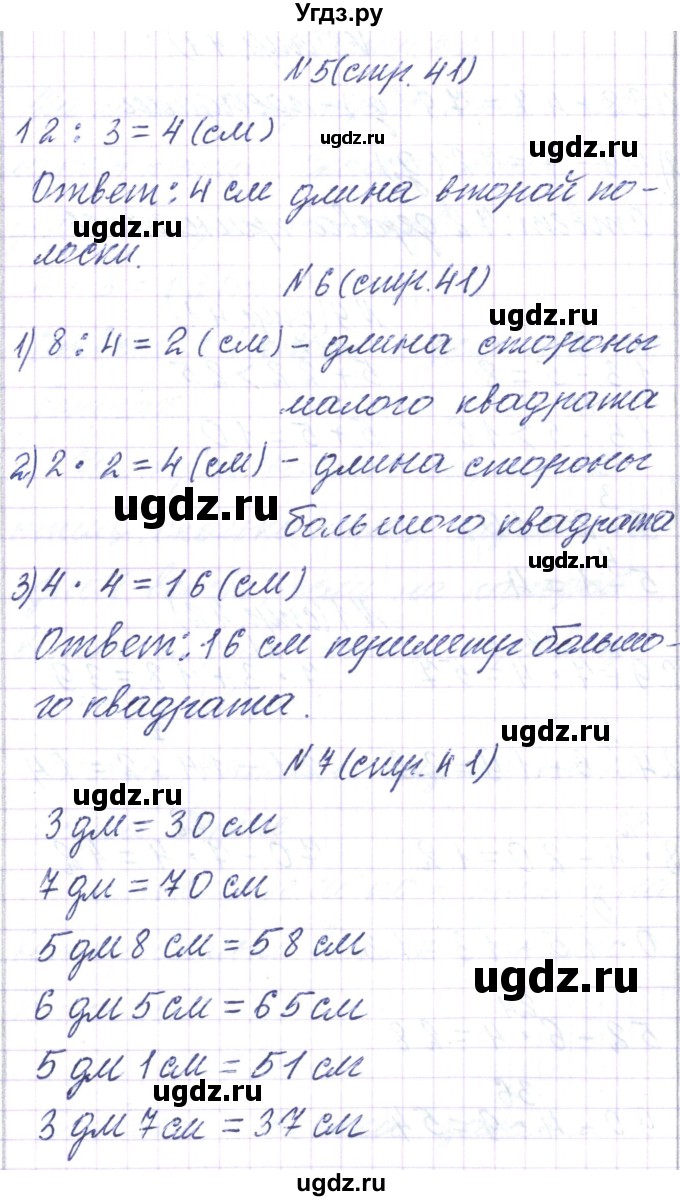 Угдз.ру
N5(стр. 41)
12 : 3 = 4 (см)
ugdz.ru
ugdz.ru
Ответ: 4 см длина второй по-
ugdz.ru
лоски.
N6(стр.41)
ugdz.ru
1) 8 : 4 = 2 (см) - длина стороны
малого квадрата
2) 2 · 2 = 4 (см) - длина стороны
ugdz.ru
большого квадрата
ugdz.ru
3) 4 · 4 = 16 (см)
Ответ: 16 см периметр большо-
го квадрата.
ugdz.ru
N7(стр. 41)
ugdz.ru
3 дм = 30 см
7 дм = 70 см
5 дм 8 см = 58 см
ugdz.ru
6 дм 5 см = 65 см
5 дм 1 см = 51 см
ugdz.ru
3 дм 7 см = 37 см
ugdz.ru